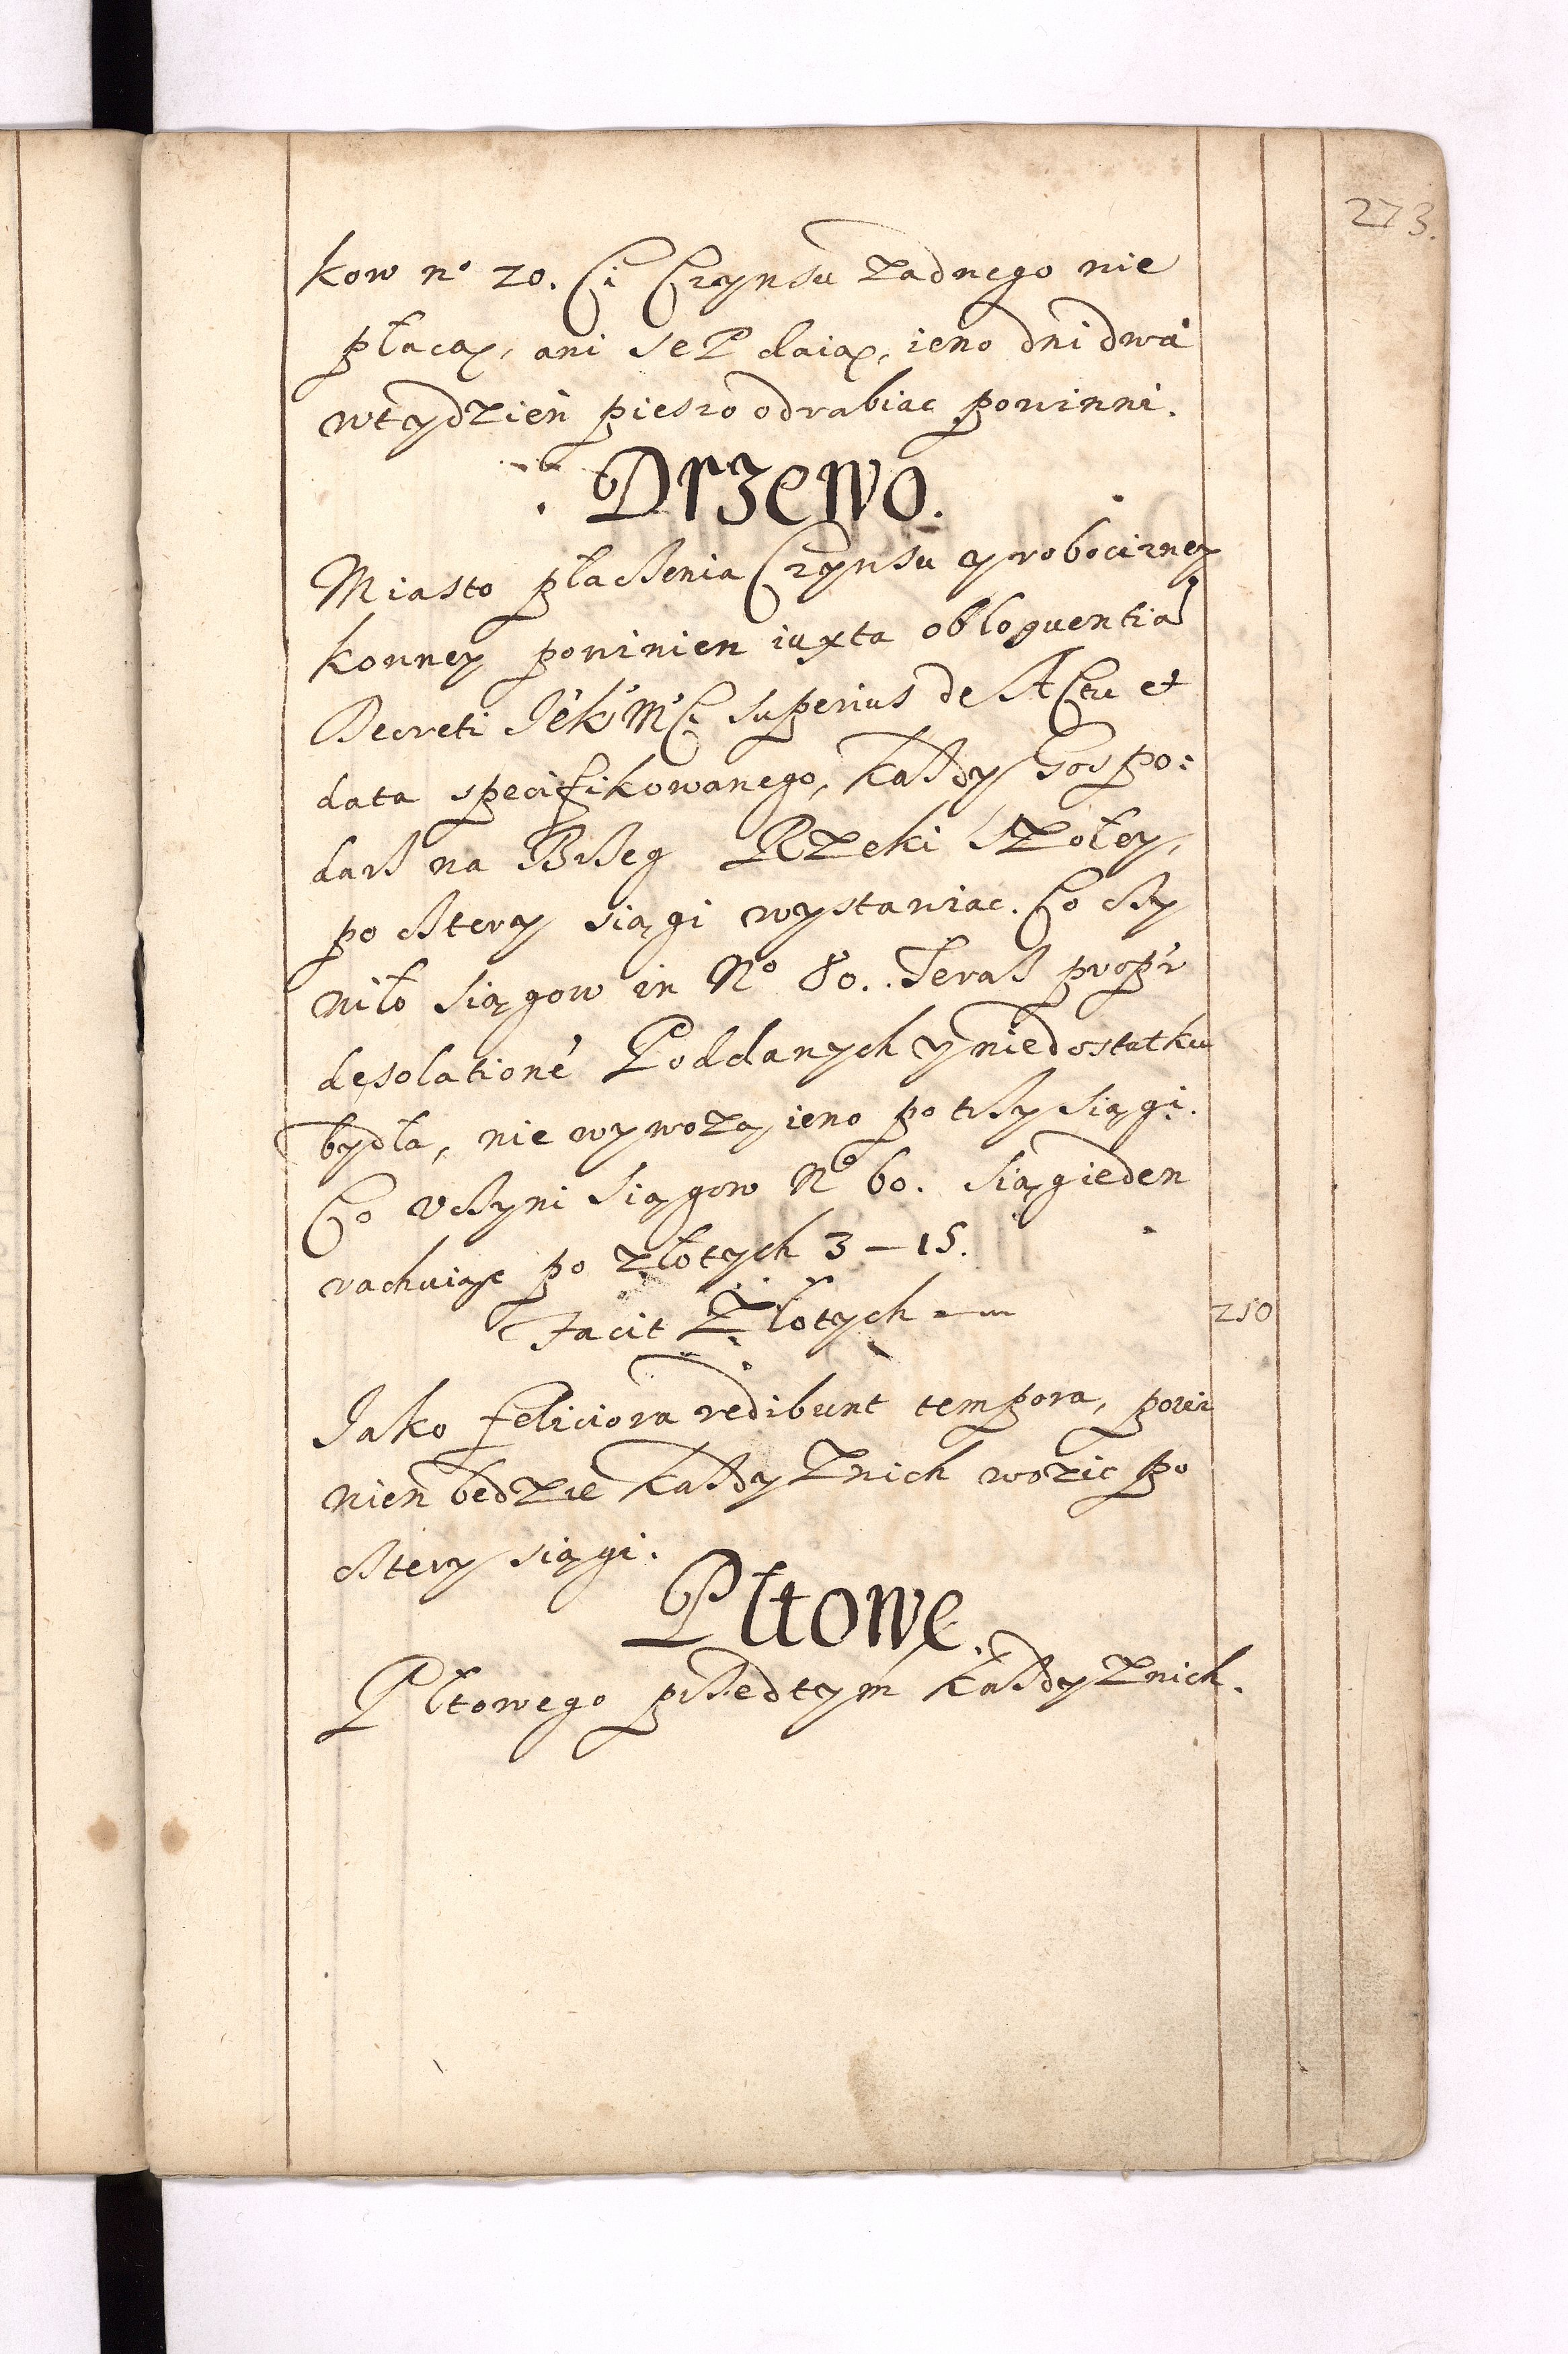 273.
kow no 20. Ci Czynsu zadnego nie
płacą, ani SeP daią, ieno dni dwa
wtydzień pieszo odrabiac powinni.
Drzewo.
Miasto płaczenia Czynsu y robocizney
konney powinien iuxta obloquentiã
Decreti JeKMCi superius de Actu et
data specifikowanego, każdy Gospo:
darz na Brzeg Rzeki Szołey,
po cztery siągi wystawiac. Co czy
niło siągow in No 80. Teraz propr
desolationẽ Poddanych y niedostatku
bydła, nie wywożą, ieno po trzy siągi.
Co vczyni siągow No 60. siąg ieden
rachuiąc po złotych 3 – 15.
Facit Złotych – 210
Jako feliciora redibunt tempora, powi
nien będzie każdy znich wozic po
cztery siągi.
Płtowe.
Płtowego przedtym każdy znich.